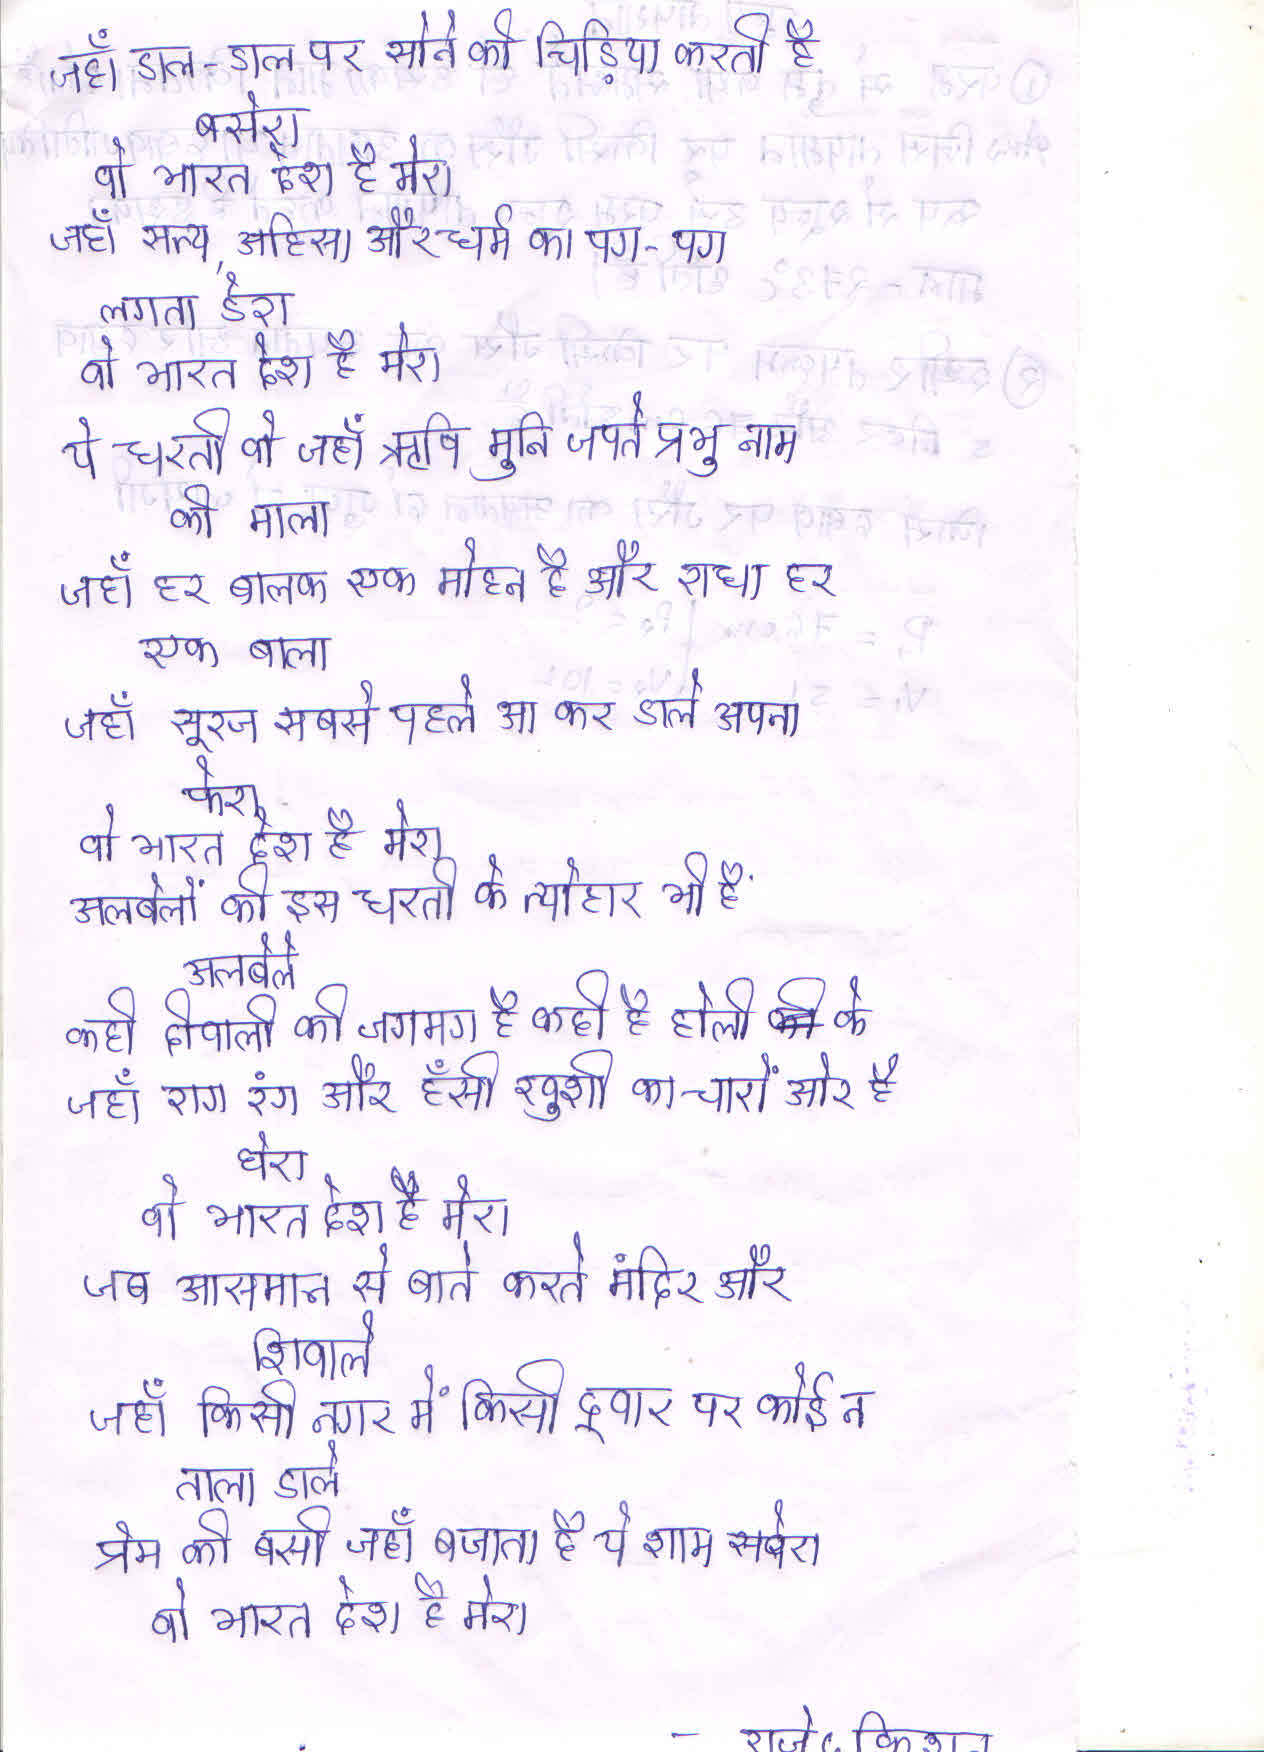 जहाँ डाल-डाल पर सोने की चिड़िया करती है
बसेरा
वो भारत देश है मेरा
जहाँ सत्य, अहिसा और धर्म का पग-पग
लगता डेरा
वो भारत देश है मेरा
ये धरती वो जहाँ ऋषि मुनि जपते प्रभु नाम
की माला
जहाँ हर बालक एक मोहन है और राधा हर
एक बाला
जहाँ सूरज सबसे पहले आ कर डाले अपना
फेरा
वो भारत देश है मेरा
अलबेलों की इस धरती के त्योहार भी हैं
अलबेले
कही दीवाली की जगमग है कही है होली के
जहाँ राग रंग और हँसी खुशी का चारों ओर है
घेरा
वो भारत देश है मेरा
जब आसमान से बाते करते मंदिर और
शिवाले
जहाँ किसी नगर में किसी द्वार पर कोई न
ताला डाले
प्रेम की बसी जहाँ बजाता है ये शाम सबेरा
वो भारत देश है मेरा